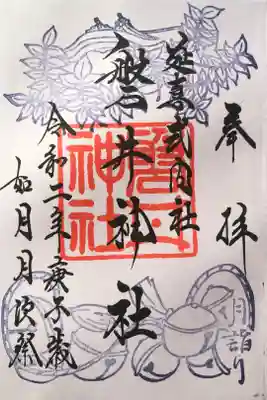 奉拝
延喜式内社
磐井神社
令和二年 庚子歳
如月月次祭
磐井
神社
詣り